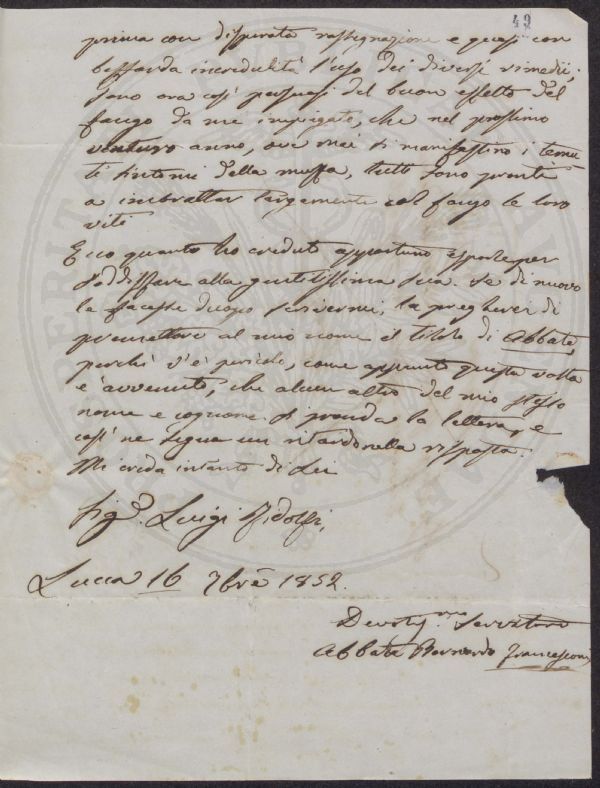 49
prima con disperata rassegnazione e quasi con
beffarda incredulità l'uso dei diversi rimedii,
sono ora così persuasi del buon effetto del
fango da me impiegato, che nel prossimo
venturo anno, ove mai si manifestino i temu
ti sintomi della muffa, tutti sono pronti
a imbrattar largamente col fango le loro
viti
Ecco quanto ho creduto opportuno esporle per
soddisfare alla gentilissima sua. Se di nuovo
le facesse duopo scrivermi, la pregherei di
premettere al mio nome il titolo di Abbate,
perchè v'è pericolo, come appunto questa volta
è avvenuto, che alcun altro del mio stesso
nome e cognome si prenda la lettera, e
così ne segua un ritardo nella risposta.
Mi creda intanto di Lei
Sig.r Luigi Ridolfi,
Lucca 16 7bre 1852.
Devotis.mo Servitore
Abbate Bernardo Francesconi